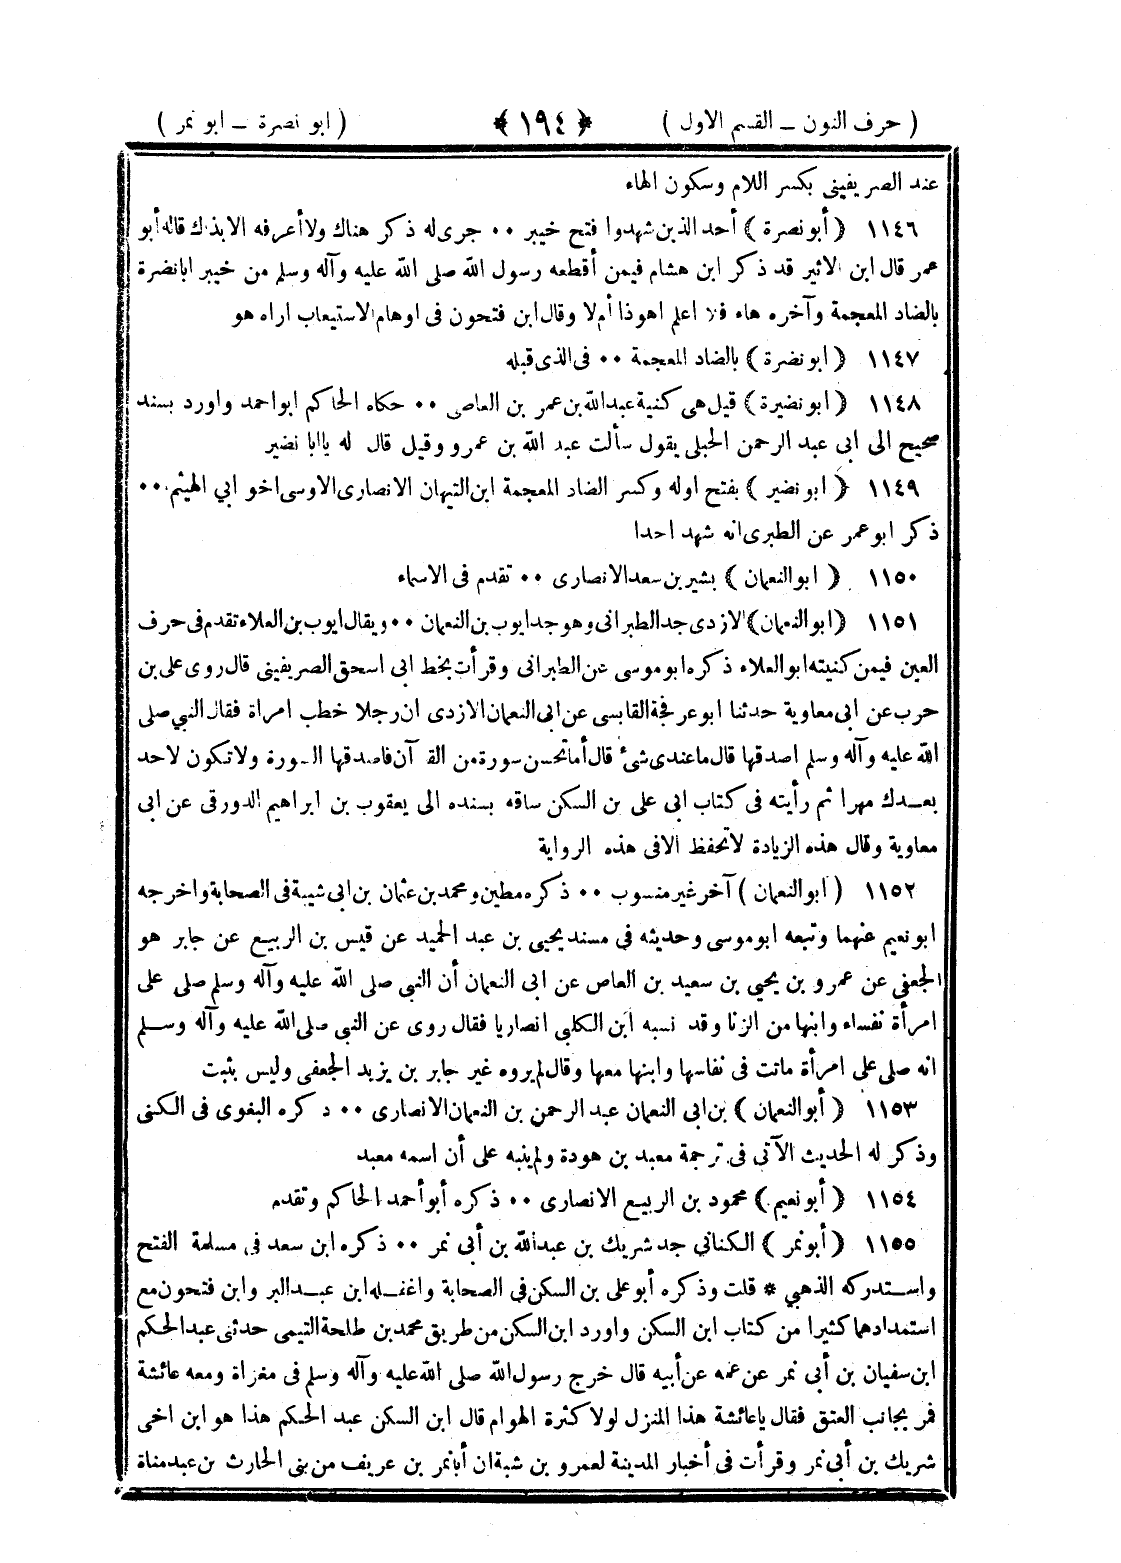 ( حرف النون ــ القسم الاول ) ﴿ ١٩٤ ﴾ ( ابو نصرة ــ ابو نمر )
عند الصريفيني بكسر اللام وسكون الهاء
١١٤٦ ( أبو نصرة ) أحد الذين شهدوا فتح خيبر ٠٠ جرى له ذكر هناك ولا أعرفه الا بذلك قاله أبو
عمر قال ابن الاثير قد ذكر ابن هشام فيمن أقطعه رسول الله صلى الله عليه وآله وسلم من خيبر ابا نضرة
بالضاد المعجمة وآخره هاء فلا اعلم اهوذا أم لا وقال ابن فتحون فى اوهام الاستيعاب اراه هو
١١٤٧ ( ابو نضرة ) بالضاد المعجمة ٠٠ فى الذى قبله
١١٤٨ ( ابو نضيرة ) قيل هى كنية عبد الله بن عمر بن العاصى ٠٠ حكاه الحاكم ابو احمد واورد بسند
صحيح الى ابى عبد الرحمن الحبلى يقول سألت عبد الله بن عمرو وقيل قال له يا ابا نضير
١١٤٩ ( ابو نضير ) بفتح اوله وكسر الضاد المعجمة ابن التيهان الانصارى الاوسى اخو ابي الهيثم ٠٠
ذكر ابو عمر عن الطبرى انه شهد احدا
١١٥٠ ( ابو النعمان ) بشير بن سعد الانصارى ٠٠ تقدم فى الاسماء
١١٥١ ( ابو النعمان ) الازدى جد الطبرانى وهو جد ايوب بن النعمان ٠٠ ويقال ايوب بن العلاء تقدم فى حرف
العين فيمن كنيته ابو العلاء ذكره ابو موسى عن الطبرانى وقرأت بخط ابى اسحق الصريفينى قال روى على بن
حرب عن ابى معاوية حدثنا ابو عرفجة القابسى عن ابى النعمان الازدى ان رجلا خطب امرأة فقال النبي صلى
الله عليه وآله وسلم اصدقها قال ما عندى شئ قال أما تحسن سورة من القرآن فاصدقها السورة ولا تكون لاحد
بعدك مهرا ثم رأيته فى كتاب ابى على بن السكن ساقه بسنده الى يعقوب بن ابراهيم الدورقى عن ابى
معاوية وقال هذه الزيادة لا تحفظ الا فى هذه الرواية
١١٥٢ ( ابو النعمان ) آخر غير منسوب ٠٠ ذكره مطين ومحمد بن عثمان بن ابى شيبة فى الصحابة واخرجه
ابو نعيم عنهما وتبعه ابو موسى وحديثه في مسند يحيى بن عبد الحميد عن قيس بن الربيع عن جابر هو
الجعفى عن عمرو بن يحيى بن سعيد بن العاص عن ابى النعمان أن النبى صلى الله عليه وآله وسلم صلى على
امرأة نفساء وابنها من الزنا وقد نسبه ابن الكلبى انصاريا فقال روى عن النبى صلى الله عليه وآله وسلم
انه صلى على امرأة ماتت فى نفاسها وابنها معها وقال لم يروه غير جابر بن يزيد الجعفى وليس بثبت
١١٥٣ ( أبو النعمان ) بن ابى النعمان عبد الرحمن بن النعمان الانصارى ٠٠ ذكره البغوى فى الكنى
وذكر له الحديث الآتى فى ترجمة معبد بن هودة ولم ينبه على أن اسمه معبد
١١٥٤ ( أبو نعيم ) محمود بن الربيع الانصارى ٠٠ ذكره أبو أحمد الحاكم وتقدم
١١٥٥ ( أبو نمر ) الكناني جد شريك بن عبد الله بن أبي نمر ٠٠ ذكره ابن سعد فى مسلمة الفتح
واستدركه الذهبي * قلت وذكره أبو على بن السكن فى الصحابة واغفله ابن عبد البر وابن فتحون مع
استمدادهما كثيرا من كتاب ابن السكن واورد ابن السكن من طريق محمد بن طلحة التيمى حدثنى عبد الحكم
ابن سفيان بن أبي نمر عن عمه عن أبيه قال خرج رسول الله صلى الله عليه وآله وسلم فى مغزاة ومعه عائشة
فمر بجانب العتق فقال يا عائشة هذا المنزل لولا كثرة الهوام قال ابن السكن عبد الحكم هذا هو ابن اخى
شريك بن أبي نمر وقرأت فى أخبار المدينة لعمرو بن شبة ان أبا نمر بن عريف من بنى الحارث بن عبد مناة